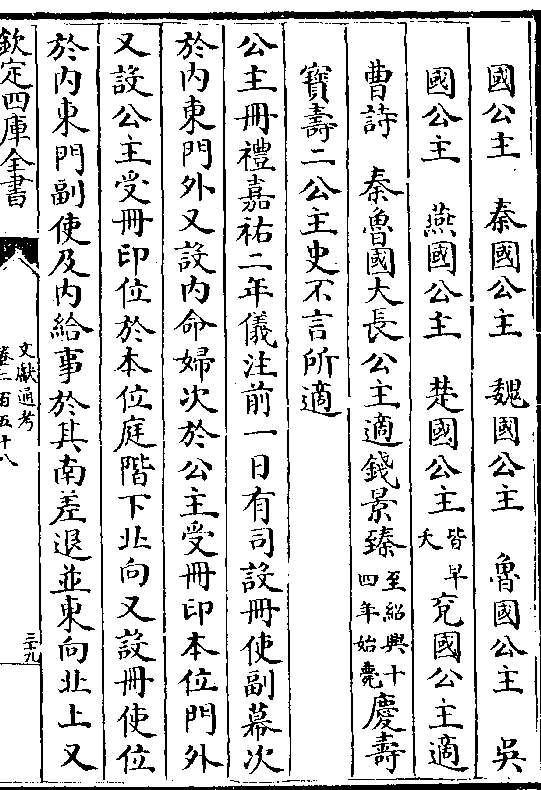 國公主　秦國公主　魏國公主　魯國公主　吳
國公主　燕國公主　楚國公主皆早夭兖國公主適
曹詩　秦魯國大長公主適錢景臻至紹興十四年始薨慶壽
寶壽二公主史不言所適
公主冊禮嘉祐二年儀注前一日有司設冊使副幕次
於内東門外又設内命婦次於公主受冊印本位門外
又設公主受冊印位於本位庭階下北向又設冊使位
於内東門副使及内給事於其南差退並東向北上又
欽定四庫全書
文獻通考
卷二百五十八
三十九